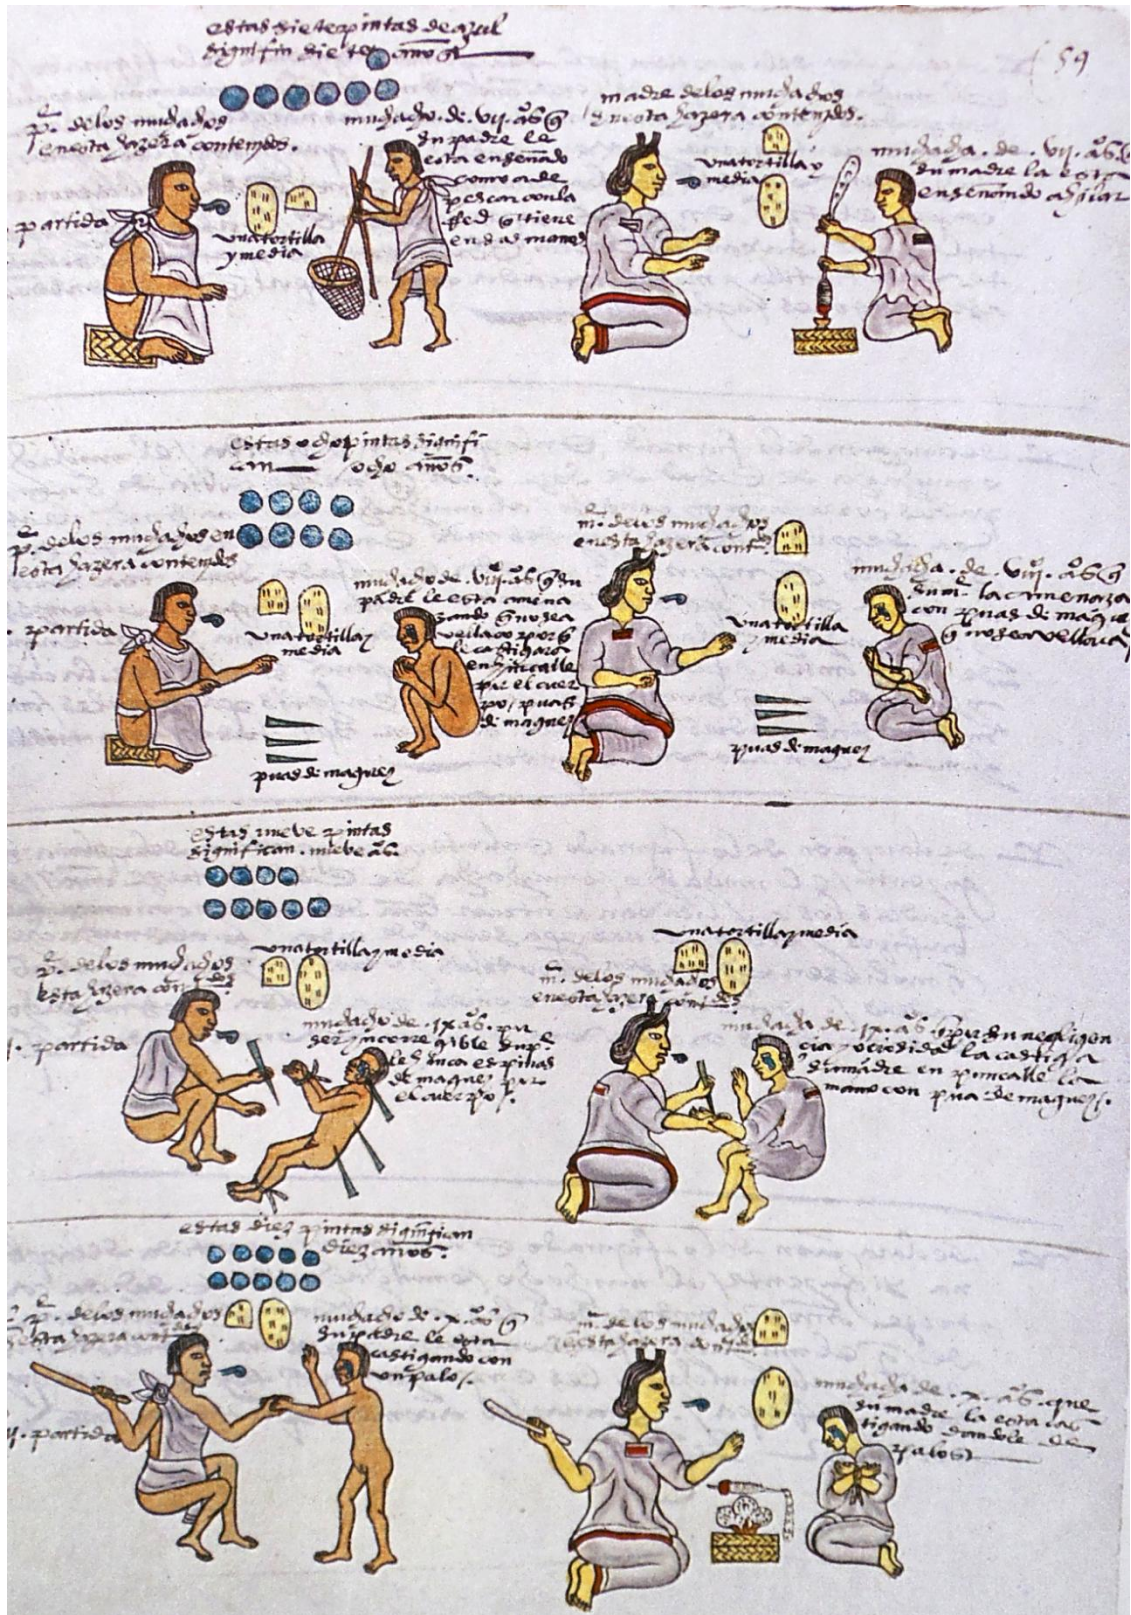 estas siete pintas de azul
signifiᷠ siete años
59
p.ᵉ de los muchachos
en esta hazera contenjdos.
muchacho. de. vij. años q̄
su padre le
esta enseñādo
como a de
pescar con la
Red q̄ tiene
en las manos
partida
una tortilla
y media
madre de los muchachos
en esta hazera contenjdos.
una tortilla y
media
muchacha. de. vij. años q̄
su madre la esta
enseñando a hilar
estas ocho pintas signifi
can ocho años.
p.ᵉ de los muchachos en
esta hazera contenjdos
partida
una tortilla y
media
muchacho de. viij. años q̄ su
padre le esta amena
zando q̄ no sea
vellaco porq̄
le castigara
en hincalle
por el cuer
po / puas
de maguey
puas de maguey
m.ᵉ de los muchachos
en esta hazera contᵈᵒˢ.
una tortilla
y media
puas de maguey
muchacha. de. viij. años q̄
su m.ᵉ la amenaza
con puas de mague
q̄ no sea vellaca
estas nueve pintas
significan. nueve aᵒˢ.
p.ᵉ de los muchachos
esta hazera contᵈᵒˢ
partida
una tortilla y media
muchacho de. ix. aᵒˢ. por
ser yncorregible su p.ᵉ
les hinca espinas
de maguey por
el cuerpo /.
una tortilla y media
m.ᵉ de los muchados
en esta hazera contᵈᵒˢ
muchacha de. ix. aᵒˢ q̄ por su negligen
cia y ociosidad la castiga
su madre en puncalle la
mano con pua de maguey /.
estas diez pintas significan
diez años.
p.ᵉ de los muchachos
esta hazera contᵈᵒˢ
partida
muchacho de. x. aᵒˢ q̄
su padre le esta
castigando con
un palo /.
m.ᵉ de los muchados
en esta hazera contᵈᵒˢ.
muchacha de. x. aᵒˢ. que
su madre la esta cas
tigando dandole de
palos